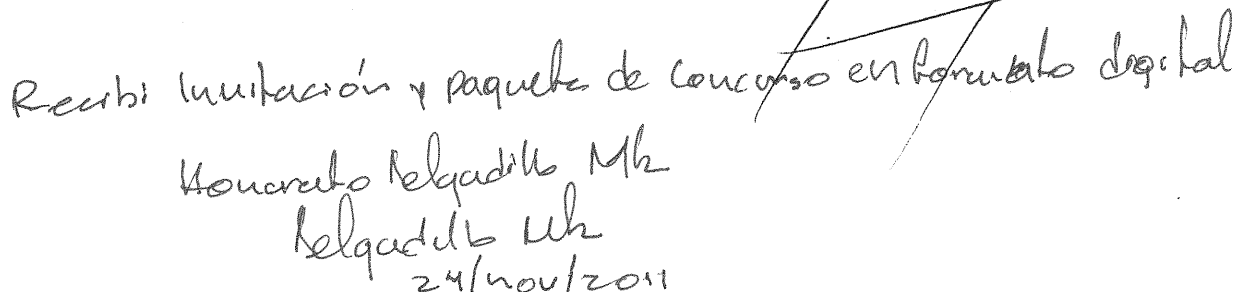 Recibi Invitación y paquete de Concurso en formato digital
Honorato Delgadillo Mtz
Delgadillo Mtz
24/nov/2011